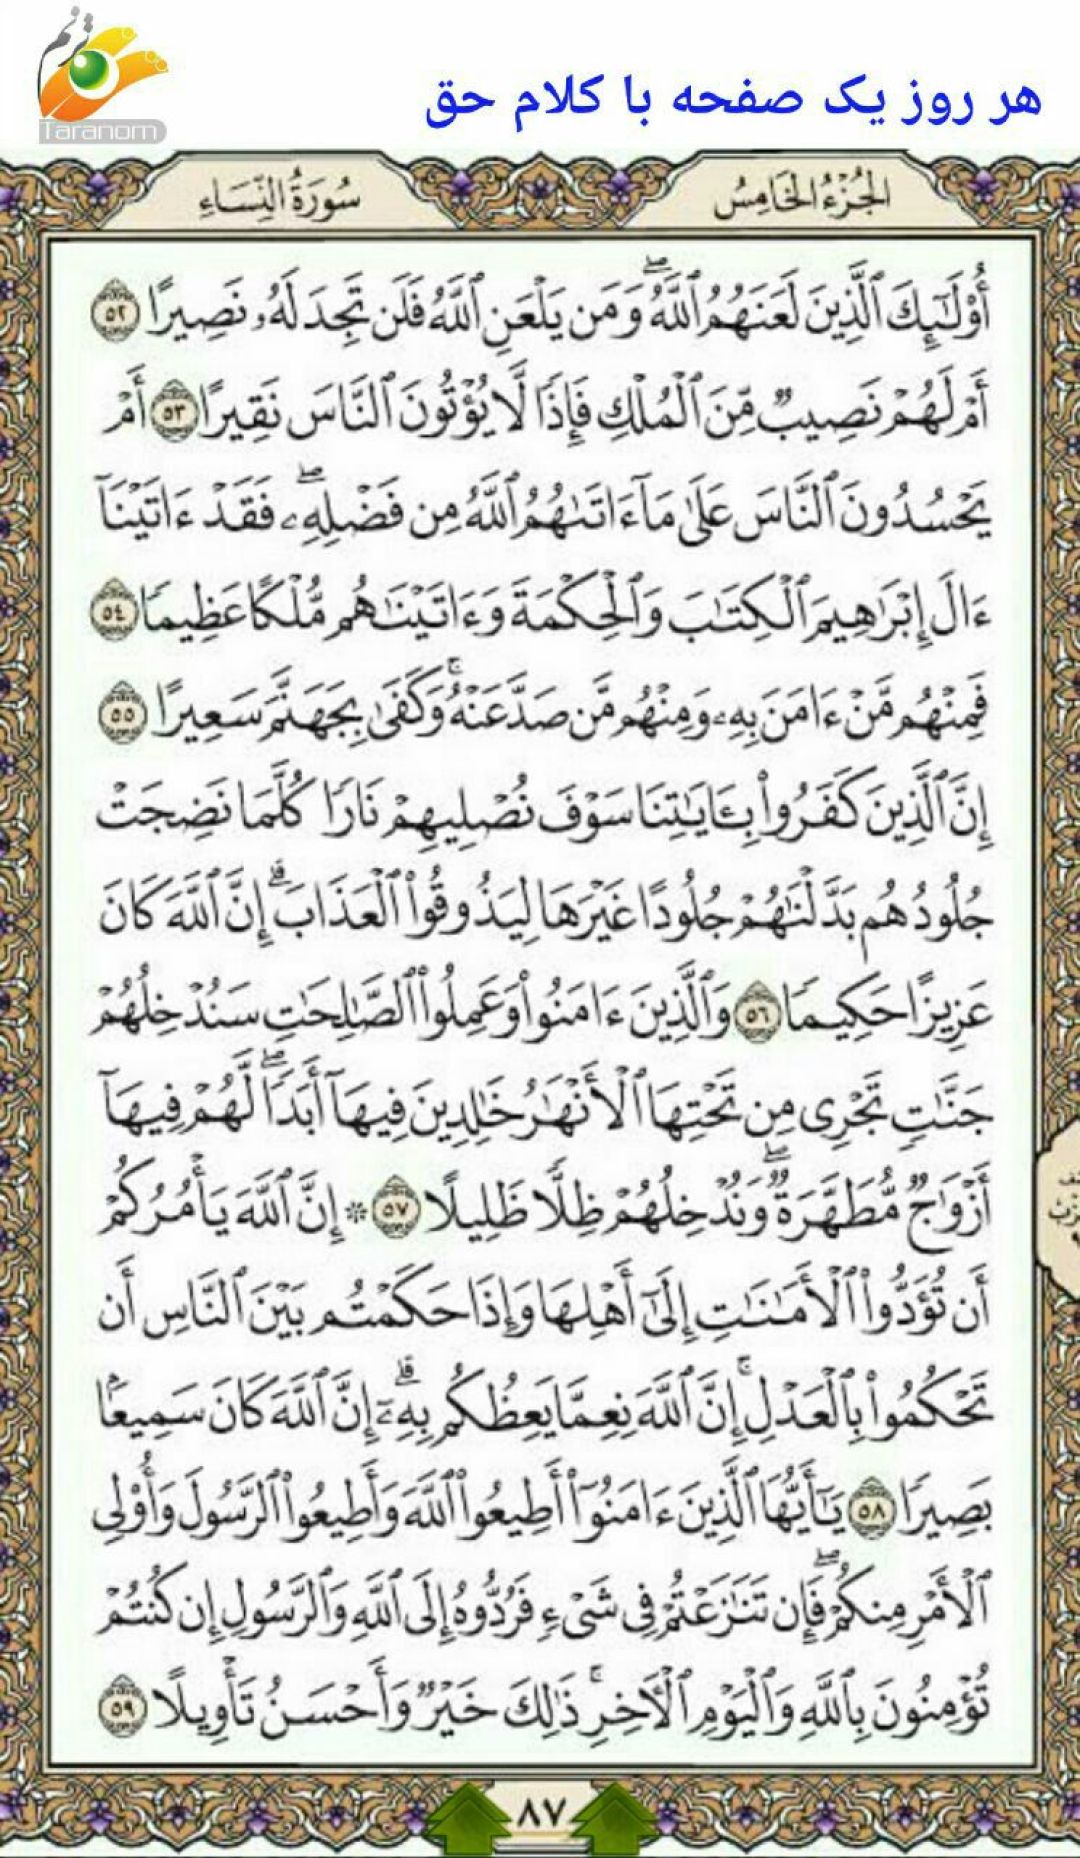 Taranom
ترنم
هر روز یک صفحه با کلام حق
الجُزْءُ الخَامِسُ
سُورَةُ النِّسَاءِ
أُوْلَـٰٓئِكَ ٱلَّذِينَ لَعَنَهُمُ ٱللَّهُۖ وَمَن يَلْعَنِ ٱللَّهُ فَلَن تَجِدَ لَهُۥ نَصِيرًا ٥٢
أَمْ لَهُمْ نَصِيبٌ مِّنَ ٱلْمُلْكِ فَإِذًا لَّا يُؤْتُونَ ٱلنَّاسَ نَقِيرًا ٥٣ أَمْ
يَحْسُدُونَ ٱلنَّاسَ عَلَىٰ مَآ ءَاتَىٰهُمُ ٱللَّهُ مِن فَضْلِهِۦۖ فَقَدْ ءَاتَيْنَآ
ءَالَ إِبْرَٰهِيمَ ٱلْكِتَـٰبَ وَٱلْحِكْمَةَ وَءَاتَيْنَـٰهُم مُّلْكًا عَظِيمًا ٥٤
فَمِنْهُم مَّنْ ءَامَنَ بِهِۦ وَمِنْهُم مَّن صَدَّ عَنْهُۚ وَكَفَىٰ بِجَهَنَّمَ سَعِيرًا ٥٥
إِنَّ ٱلَّذِينَ كَفَرُوا۟ بِـَٔايَـٰتِنَا سَوْفَ نُصْلِيهِمْ نَارًا كُلَّمَا نَضِجَتْ
جُلُودُهُم بَدَّلْنَـٰهُمْ جُلُودًا غَيْرَهَا لِيَذُوقُوا۟ ٱلْعَذَابَۗ إِنَّ ٱللَّهَ كَانَ
عَزِيزًا حَكِيمًا ٥٦ وَٱلَّذِينَ ءَامَنُوا۟ وَعَمِلُوا۟ ٱلصَّـٰلِحَـٰتِ سَنُدْخِلُهُمْ
جَنَّـٰتٍ تَجْرِى مِن تَحْتِهَا ٱلْأَنْهَـٰرُ خَـٰلِدِينَ فِيهَآ أَبَدًاۖ لَّهُمْ فِيهَآ
أَزْوَٰجٌ مُّطَهَّرَةٌۖ وَنُدْخِلُهُمْ ظِلًّا ظَلِيلًا ٥٧ * إِنَّ ٱللَّهَ يَأْمُرُكُمْ
أَن تُؤَدُّوا۟ ٱلْأَمَـٰنَـٰتِ إِلَىٰٓ أَهْلِهَا وَإِذَا حَكَمْتُم بَيْنَ ٱلنَّاسِ أَن
تَحْكُمُوا۟ بِٱلْعَدْلِۚ إِنَّ ٱللَّهَ نِعِمَّا يَعِظُكُم بِهِۦٓۗ إِنَّ ٱللَّهَ كَانَ سَمِيعًۢا
بَصِيرًا ٥٨ يَـٰٓأَيُّهَا ٱلَّذِينَ ءَامَنُوٓا۟ أَطِيعُوا۟ ٱللَّهَ وَأَطِيعُوا۟ ٱلرَّسُولَ وَأُو۟لِى
ٱلْأَمْرِ مِنكُمْۖ فَإِن تَنَـٰزَعْتُمْ فِى شَىْءٍ فَرُدُّوهُ إِلَى ٱللَّهِ وَٱلرَّسُولِ إِن كُنتُمْ
تُؤْمِنُونَ بِٱللَّهِ وَٱلْيَوْمِ ٱلْـَٔاخِرِۚ ذَٰلِكَ خَيْرٌ وَأَحْسَنُ تَأْوِيلًا ٥٩
٨٧